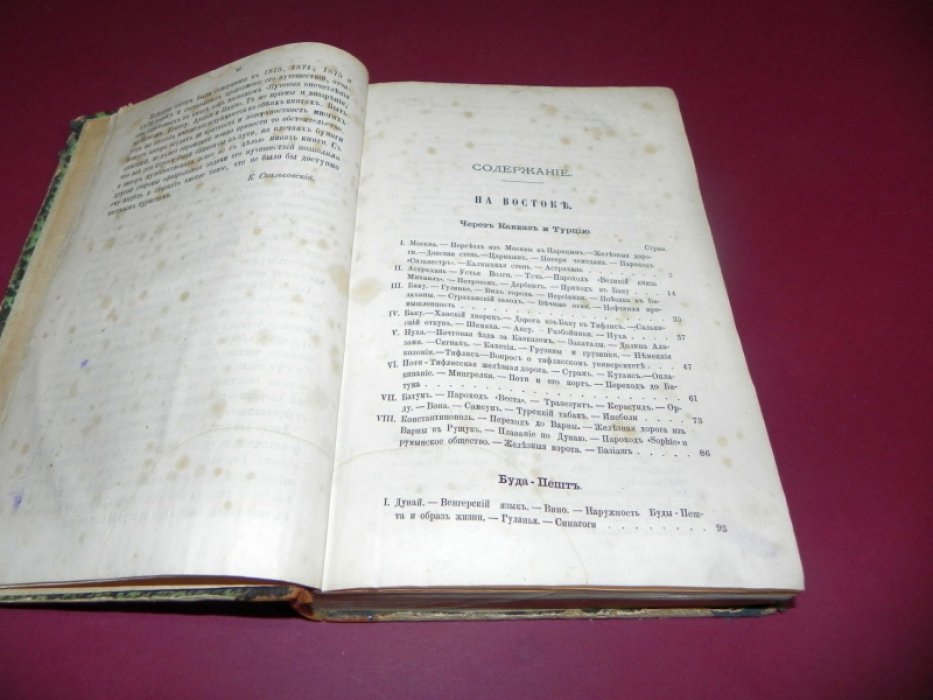 были совершены въ 1873, 1874, 1875 и
«Путевыя впечатлѣнія
на клочкахъ бумаги
писать книги. Съ
путешествій позволили
что не было бы доступно
К. Скальковскій.
СОДЕРЖАНІЕ.
НА ВОСТОКѢ.
Черезъ Кавказъ и Турцію.
Стран.
I. Москва. — Переѣздъ изъ Москвы въ Царицынъ. — Желѣзныя доро-
ги. — Донская степь. — Царицынъ. — Потеря чемодана. — Пароходъ
«Сильвестръ». — Калмыцкая степь. — Астрахань . . . . . . 3
II. Астрахань — Устья Волги. — Пароходъ «Великій князь
Михаилъ». — Петровскъ. — Дербентъ. — Приходъ въ Баку . . . . 14
III. Баку. — Гулянье. — Видъ города. — Персіянки. — Поѣздка въ Ба-
лаханы. — Сураханскій заводъ. — Вѣчные огни. — Нефтяная про-
мышленность . . . . . . . . . . 25
IV. Баку. — Ханскій дворецъ. — Дорога изъ Баку въ Тифлисъ. — Салья́н-
скій откупъ. — Шемаха. — Аксу. — Разбойники. — Нуха . . . . 37
V. Нуха. — Почтовая ѣзда за Кавказомъ. — Закаталы. — Долина Ала-
зани. — Сигнахъ. — Кахетія. — Грузины и грузинки. — Нѣмецкія
колоніи. — Тифлисъ. — Вопросъ о тифлисскомъ университетѣ . . . 47
VI. Поти-Тифлисская желѣзная дорога. — Сурамъ. — Кутаисъ. — Опла-
киваніе. — Мингрелки. — Поти и его портъ. — Переходъ до Ба-
тума . . . . . . . . . . 61
VII. Батумъ. — Пароходъ «Веста». — Трапезунтъ. — Керасундъ. — Ор-
ду. — Вона. — Самсунъ. — Турецкій табакъ. — Инеболи . . . . 73
VIII. Константинополь. — Переходъ до Варны. — Желѣзная дорога изъ
Варны въ Рущукъ. — Плаваніе по Дунаю. — Пароходъ «Sophie» и
румынское общество. — Желѣзныя ворота. — Базіашъ . . . . 86
Буда-Пештъ.
I. Дунай. — Венгерскій языкъ. — Вино. — Наружность Буды-Пеш-
та и образъ жизни. — Гулянья. — Синагоги . . . . . . . 93